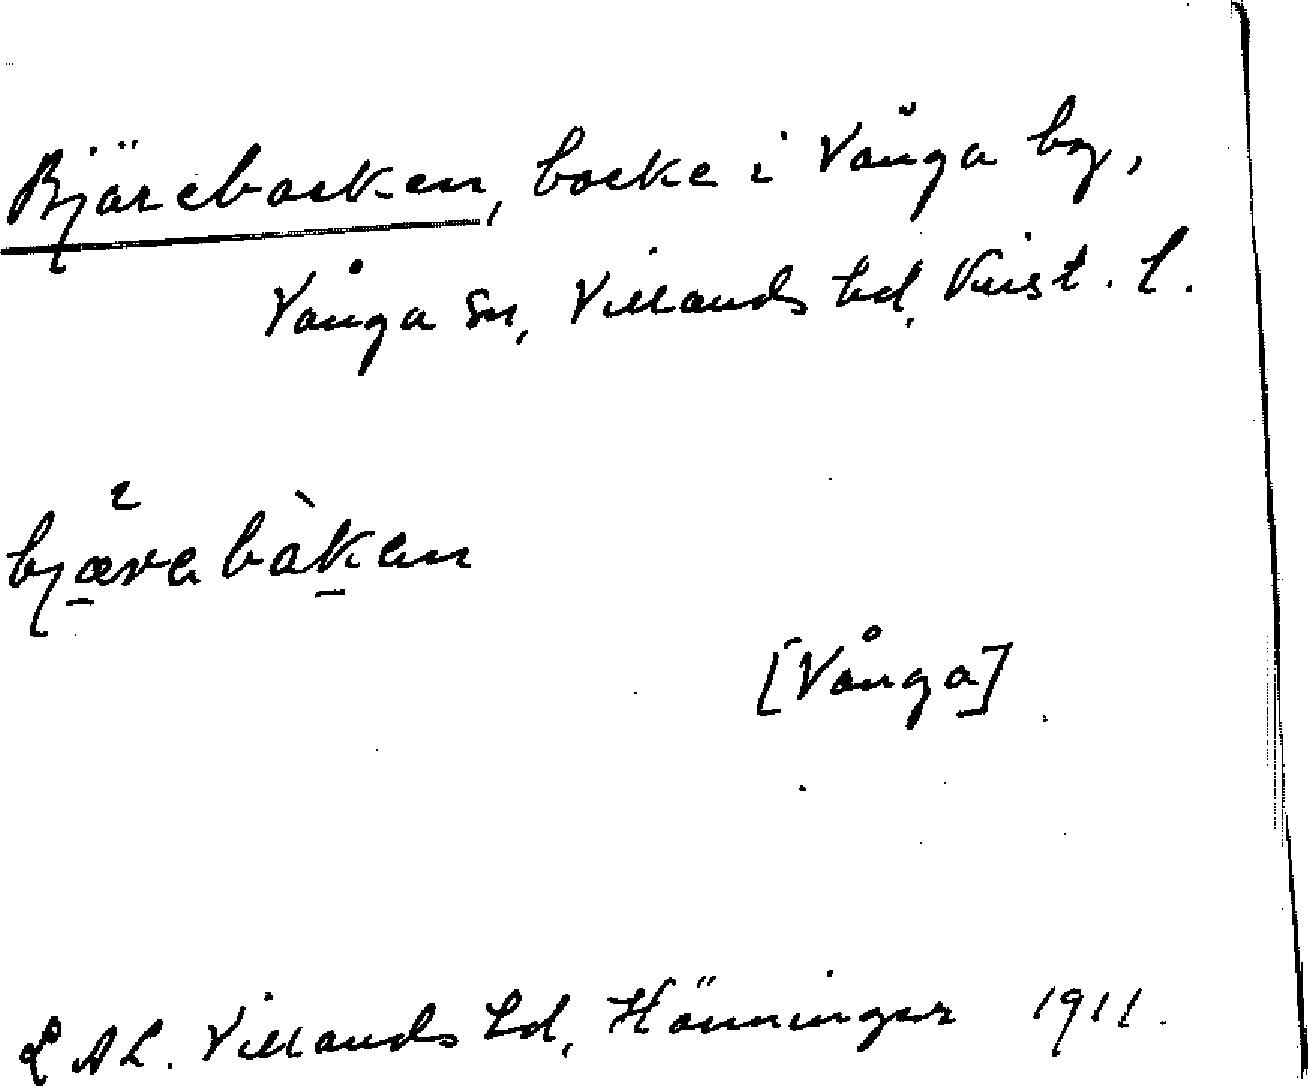 Bjärebacken, backe i Vånga by,
Vånga sn, Villands hd, Krist. l.
bjærabàkan
[Vånga]
LAL. Villands hd, Hänninger 1911.